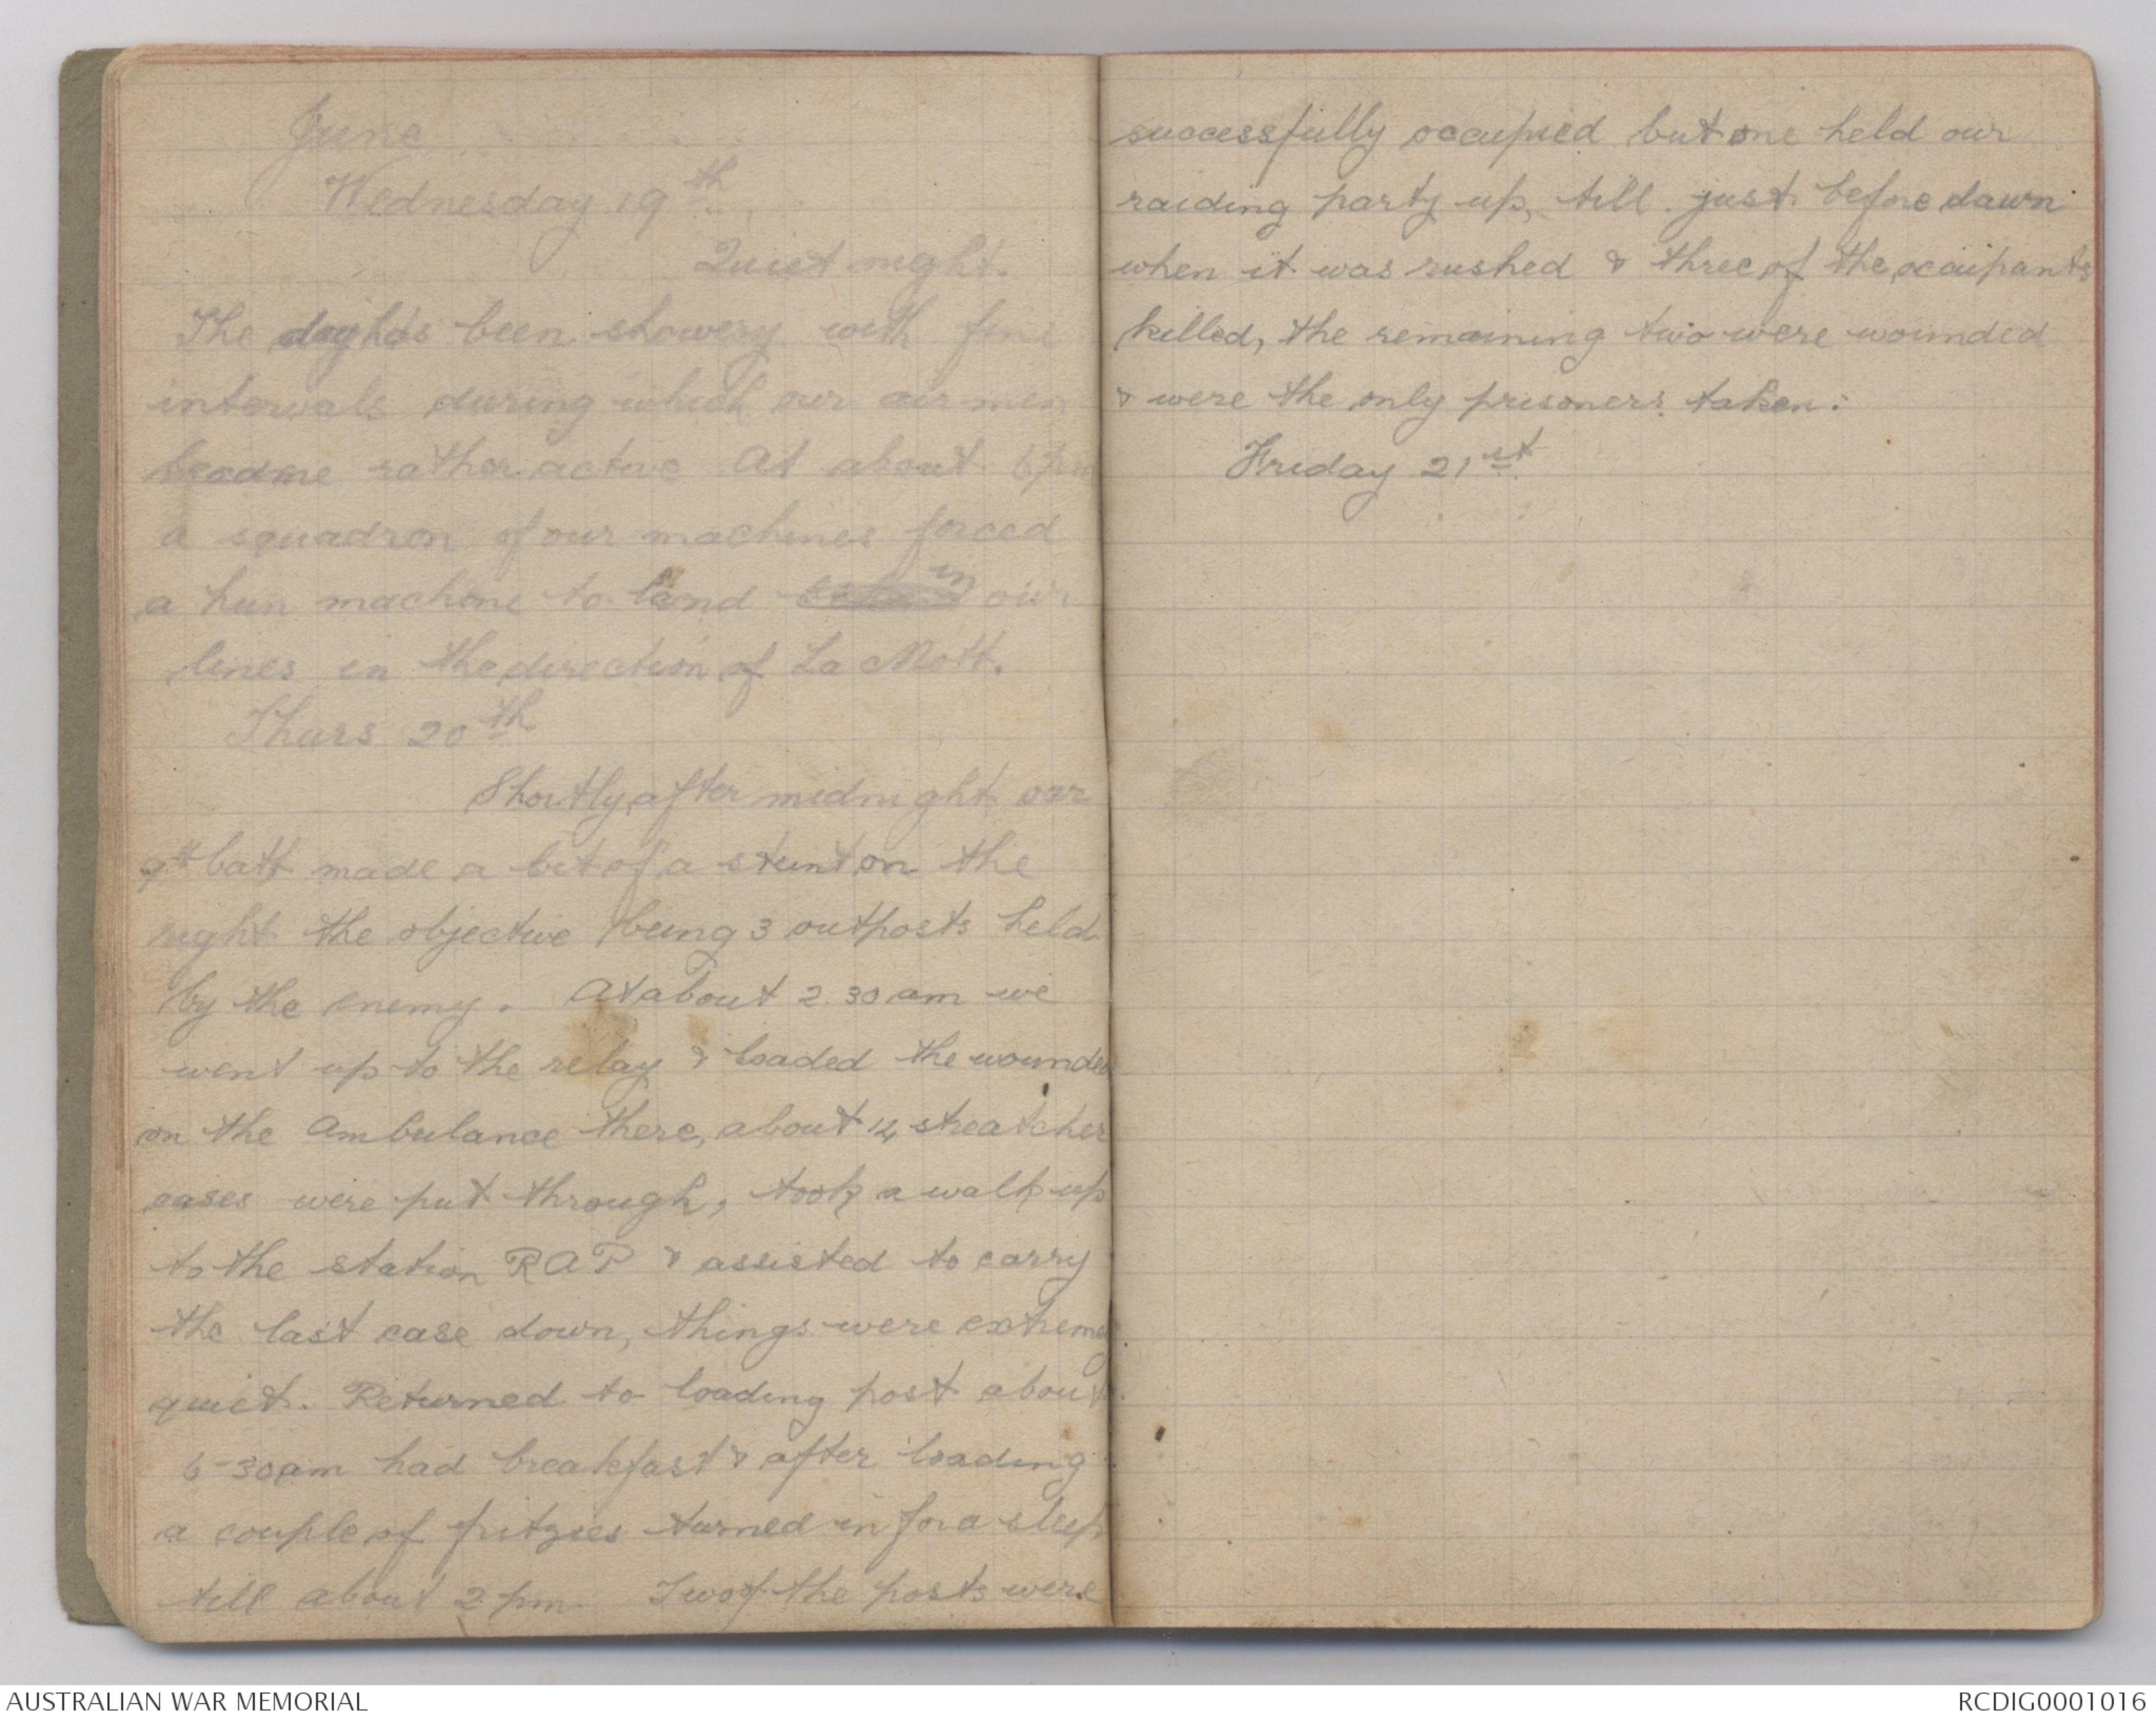 June
Wednesday 19th
Quiet night.
The day has been showery with fine
intervals during which our air men
became rather active At about 6pm
a squadron of our machines forced
a hun machine to land in our
lines in the direction of La Mott.
Thurs 20th
Shortly after midnight our
9th batt made a bit of a stunt on the
right the objective being 3 outposts held
by the enemy. At about 2.30 am we
went up to the relay & loaded the wounded
on the Ambulance there, about streatcher
cases were put through, took a walk up
to the station RAP & assisted to carry
the last case down, things were extremely
quiet. Returned to loading post about
6-30am had breakfast & after loading
a couple of fritzies turned in for a sleep
till about 2 pm. Two of the posts were
successfully occupied but one held our
raiding party up, till just before dawn
when it was rushed & three of the occupants
killed, the remaining two were wounded
& were the only prisoners taken.
Friday 21st
AUSTRALIAN WAR MEMORIAL
RCDIG0001016